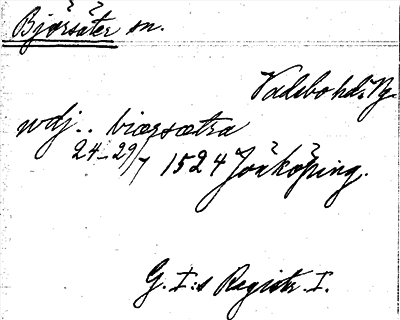 Björsäter sn.
Vadsbo hd. Vg.
wdj .. biørsætra
24–29/7 1524 Jönköping.
G. I:s Registr. I.